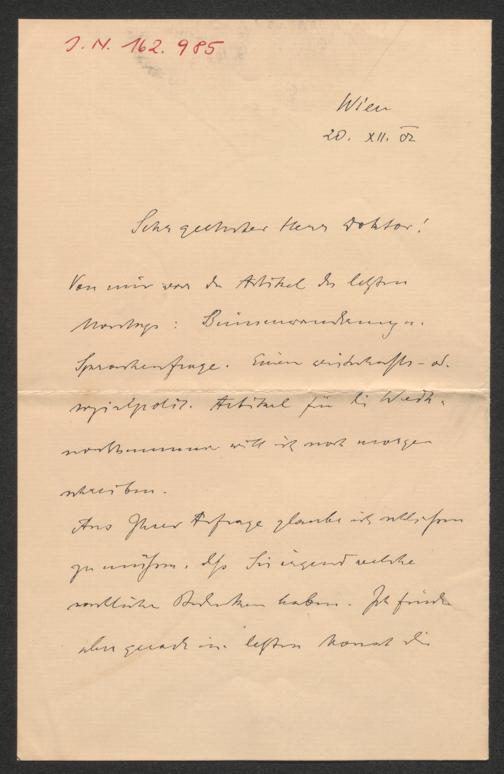 J. N. 162.985
Wien
20. XII. 02
Sehr geehrter Herr Doktor!
Von mir war der Artikel des letzten
Montags: Binnenwanderung u.
Sprachenfrage. Einen wirtschafts- od.
sozialpolit. Artikel für die Weih-
nachtsnummer will ich noch morgen
schreiben.
Aus Ihrer Anfrage glaube ich schließen
zu müssen, daß Sie irgend welche
sachliche Bedenken haben. Ich finde
aber gerade im letzten Monat die